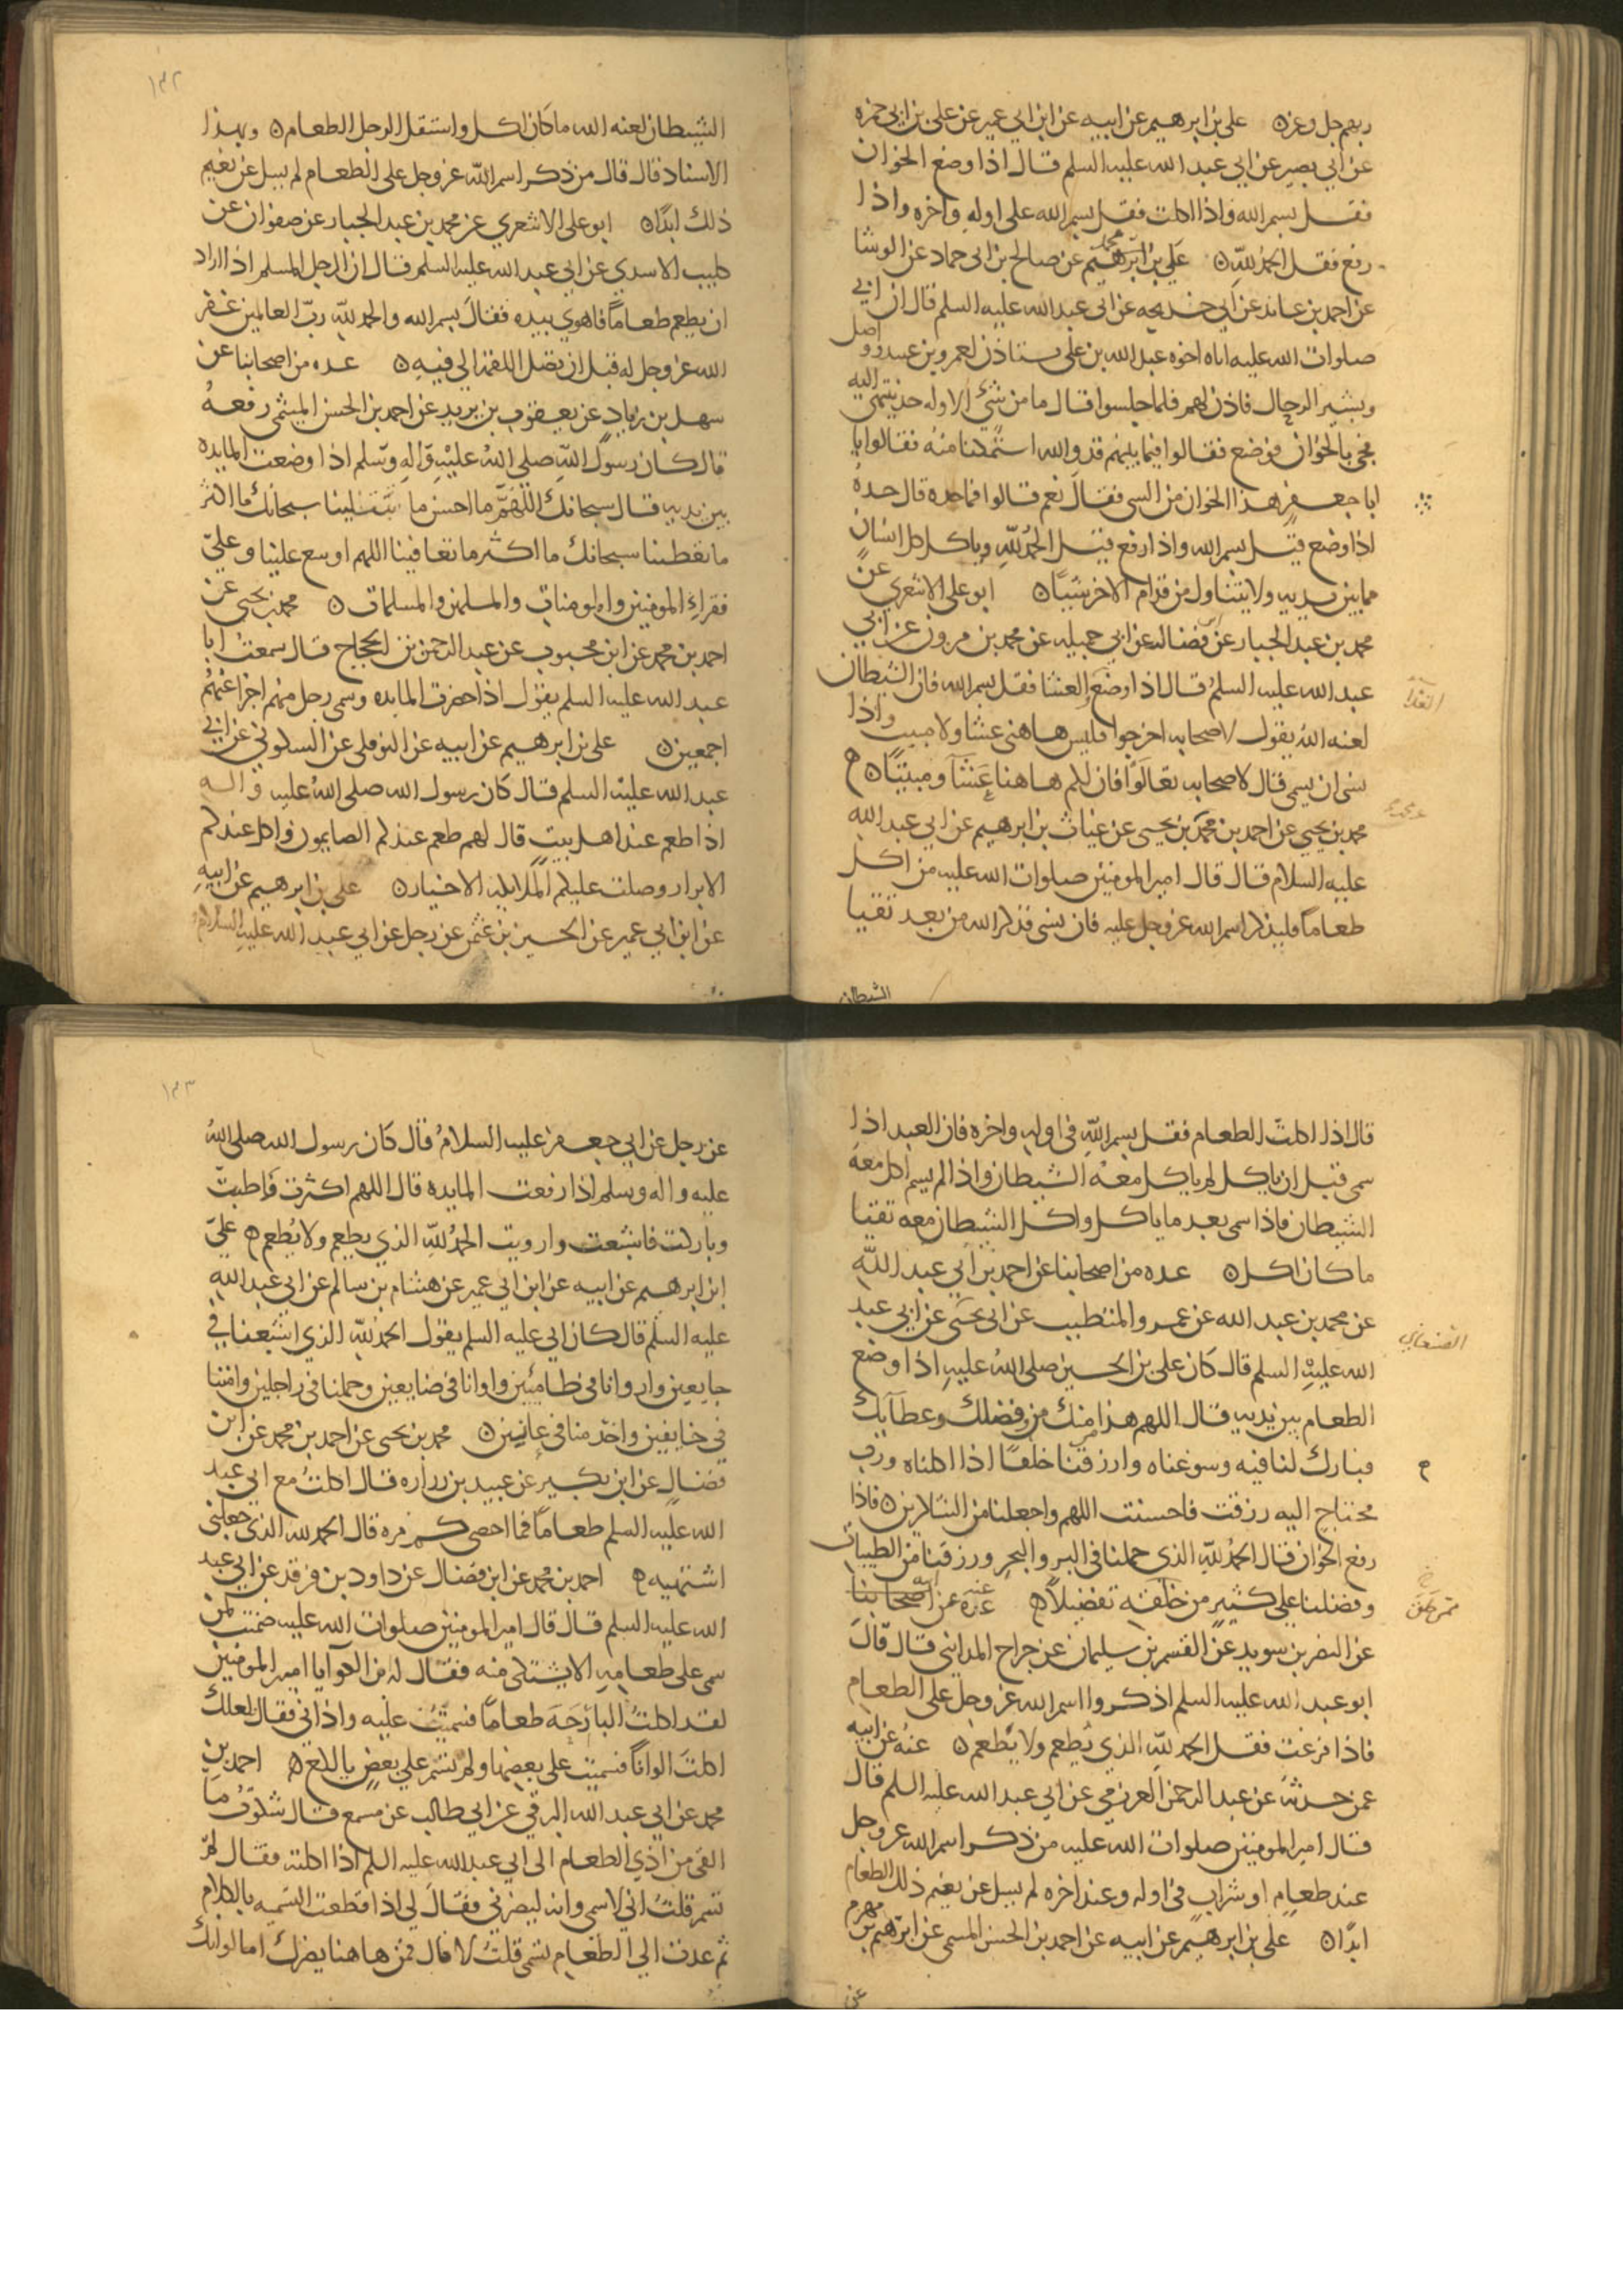 ربهم جل وعز ن علي بن ابرهيم عن ابيه عن ابن ابي عمير عن علي بن ابي حمزه
عن ابي بصير عن ابي عبد الله عليه السلم قال اذا وضع الخوان
فقل بسم الله واذا اكلت فقل بسم الله على اوله واخره واذا
رفع فقل الحمد لله ن علي بن ابرهيم عن صالح بن ابي حماد عن الوشا
محمد
عن احمد بن عائد عن ابي خديجه عن ابي عبد الله عليه السلم قال ان ابي
صلوات الله عليه اتاه اخوه عبد الله بن علي يستاذن لعمرو بن عبيد وواصل
وبشير الرحال فاذن لهم فلما جلسوا قال ما من شئ الا وله حد ينتهى اليه
فجئ بالخوان فوضع فقالوا فيما بينهم قد والله استمكنا منه فقالوا يا
ابا جعفر هذا الخوان من الشي فقال نعم قالوا فما حده قال حده
اذا وضع قيل بسم الله واذا رفع قيل الحمد لله وياكل كل انسان
مما بين يديه ولا يتناول من قدام الاخر شيئا ن ابو علي الاشعري عن
محمد بن عبد الجبار عن ابن فضال عن ابي جميله عن محمد بن مروان عن ابي
عبد الله عليه السلم قال اذا وضع العشا فقل بسم الله فان الشيطان
الغدا
لعنه الله يقول لاصحابه اخرجوا فليس هاهنا عشا ولا مبيت واذا
نسى ان يسمي قال لاصحابه تعالوا فان لكم هاهنا عشآ ومبيتا ن
محمد بن يحيى عن احمد بن محمد بن يحيى عن غياث بن ابرهيم عن ابي عبد الله
عن محمد
عليه السلام قال قال امير المومنين صلوات الله عليه من اكل
طعاما فليذكر اسم الله عز وجل عليه فان نسى فذكر الله من بعد تقيا
الشيطان
١٣٢
الشيطان لعنه الله ما كان اكل واستقل الرجل الطعام ن وبهذا
الاسناد قال قال من ذكر اسم الله عز وجل على الطعام لم يسل عن نعيم
ذلك ابدا ن ابو علي الاشعري عن محمد بن عبد الجبار عن صفوان عن
كليب الاسدي عن ابي عبد الله عليه السلم قال ان الرجل المسلم اذا اراد
ان يطعم طعاما فاهوي بيده فقال بسم الله والحمد لله رب العالمين غفر
الله عز وجل له قبل ان تصل اللقمة الي فيه ن عده من اصحابنا عن
سهل بن زياد عن يعقوب بن يزيد عن احمد بن الحسن الميثمي رفعه
قال كان رسول الله صلى الله عليه واله وسلم اذا وضعت المايده
بين يديه قال سبحانك اللهم ما احسن ما تبتلينا سبحانك ما اكثر
ما تعطينا سبحانك ما اكثر ما تعافينا اللهم اوسع علينا وعلي
فقراء المومنين والمومنات والمسلمين والمسلمات ن محمد بن يحيى عن
احمد بن محمد عن ابن محبوب عن عبد الرحمن بن الحجاج قال سمعت ابا
عبد الله عليه السلم يقول اذا حضرت المايده وسمى رجل منهم اجزا عنهم
اجمعين ن علي بن ابرهيم عن ابيه عن النوفلي عن السكوني عن ابي
عبد الله عليه السلم قال كان رسول الله صلى الله عليه واله
اذا طعم عند اهل بيت قال لهم طعم عندكم الصايمون واكل عندكم
الابرار وصلت عليكم الملايكة الاخيار ن علي بن ابرهيم عن ابيه
عن ابن ابي عمير عن الحسين بن عثمن عن رجل عن ابي عبد الله عليه السلام
قال اذا اكلت الطعام فقل بسم الله في اوله واخره فان العبد اذا
سمى قبل ان ياكل لم ياكل معه الشيطان واذا لم يسم اكل معه
الشيطان فاذا سمى بعد ما ياكل واكل الشيطان معه تقيا
ما كان اكل ن عده من اصحابنا عن احمد بن ابي عبد الله
عن محمد بن عبد الله عن عمرو المتطبب عن ابي يحيى عن ابي عبد
الصنعاني
الله عليه السلم قال كان علي بن الحسين صلى الله عليه اذا وضع
الطعام بين يديه قال اللهم هذا منك من فضلك وعطآيك
فبارك لنا فيه وسوغناه وارزقنا خلفا اذا اكلناه ورب
محتاج اليه رزقت فاحسنت اللهم واجعلنا من الشاكرين ن فاذا
رفع الخوان قال الحمد لله الذي حملنا في البر والبحر ورزقنا من الطيبات
وفضلنا على كثير من خلقه تفضيلا عده عن اصحابنا
عنه
ممن خلق
عن النضر بن سويد عن القسم بن سليمان عن جراح المدايني قال قال
ابو عبد الله عليه السلم اذكروا اسم الله عز وجل على الطعام
فاذا فرغت فقل الحمد لله الذي يطعم ولا يطعم ن عنه عن ابيه
عمن حدثه عن عبد الرحمن العرزمي عن ابي عبد الله عليه السلم قال
قال امير المومنين صلوات الله عليه من ذكر اسم الله عز وجل
عند طعام او شراب في اوله وعند اخره لم يسل عن نعيم ذلك الطعام
ابدا ن علي بن ابرهيم عن ابيه عن احمد بن الحسن الميثمي عن ابرهيم بن مهزم
عن
١٣٣
عن رجل عن ابي جعفر عليه السلام قال كان رسول الله صلى الله
عليه واله وسلم اذا رفعت المايده قال اللهم اكثرت فاطبت
وباركت فاشبعت وارويت الحمد لله الذي يطعم ولا يطعم علي
ابن ابرهيم عن ابيه عن ابن ابي عمير عن هشام بن سالم عن ابي عبد الله
عليه السلم قال كان ابي عليه السلم يقول الحمد لله الذي اشبعنا في
جايعين واروانا في ظامئين واوانا في ضايعين وحملنا في راجلين وامننا
في خايفين واخدمنا في عانين ن محمد بن يحيى عن احمد بن محمد عن ابن
فضال عن ابن بكير عن عبيد بن زراره قال اكلت مع ابي عبد
الله عليه السلم طعاما فما احصي كم مره قال الحمد لله الذي جعلني
اشتهيه احمد بن محمد عن ابن فضال عن داود بن فرقد عن ابي عبد
الله عليه السلم قال قال امير المومنين صلوات الله عليه ضمنت لمن
سمى على طعامه الا يشتكى منه فقال له ابن الكوا يا امير المومنين
لقد اكلت البارحة طعاما فسميت عليه واذاني فقال لعلك
اكلت الوانا فسميت على بعضها ولم تسم علي بعض يا لكع احمد بن
محمد عن ابي عبد الله البرقي عن ابي طالب عن مسمع قال شكوت ما
القى من اذي الطعام الى ابي عبد الله عليه السلم اذا اكلته فقال لم
تسم قلت اني لاسمي وانه ليضرني فقال لي اذا قطعت التسميه بالكلام
ثم عدت الي الطعام تسمى قلت لا قال فمن هاهنا يضرك اما لو انك